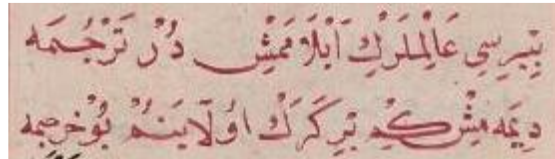 بِيرِسِي عَالِمْلَرِكْ اَيْلَا مَمِشْ دُرْ تَرْجُمَه
دِيمَه مِشْ كِمْ بِرْ كَرَكْ اوُلَا بَنُمْ بُو خرجمه